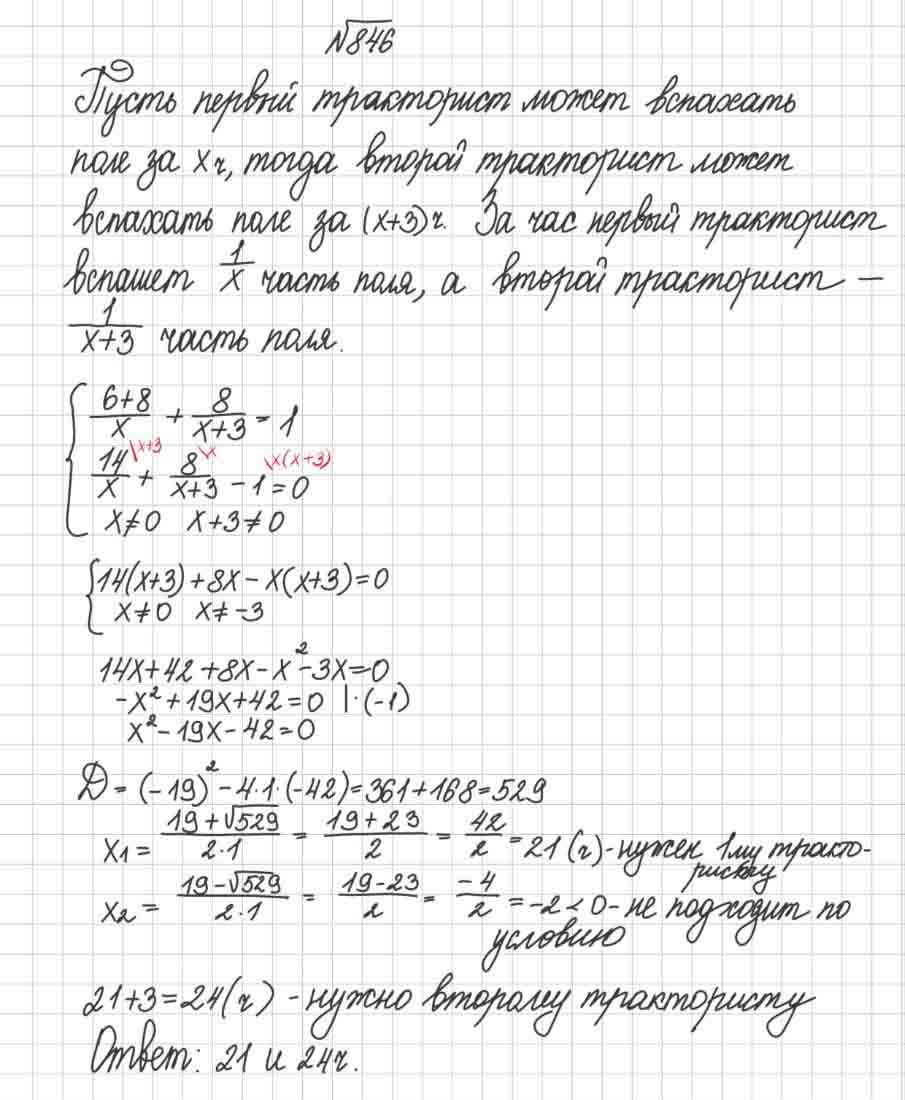 №846
Пусть первый тракторист может вспахать
поле за x ч, тогда второй тракторист может
вспахать поле за (x+3) ч. За час первый тракторист
вспашет 1/x часть поля, а второй тракторист –
1/(x+3) часть поля.
{ (6+8)/x + 8/(x+3) = 1
\x+3 \x \x(x+3)
14/x + 8/(x+3) - 1 = 0
x≠0 x+3≠0
{ 14(x+3)+8x-x(x+3)=0
x≠0 x≠-3
14x+42+8x-x²-3x=0
-x²+19x+42=0 |·(-1)
x²-19x-42=0
D=(-19)²-4·1·(-42)=361+168=529
x1 = (19+√529)/(2·1) = (19+23)/2 = 42/2 = 21 (ч) - нужен 1му тракто-
ристу
x2 = (19-√529)/(2·1) = (19-23)/2 = -4/2 = -2 < 0 - не подходит по
условию
21+3=24(ч) - нужно второму трактористу
Ответ: 21 и 24ч.